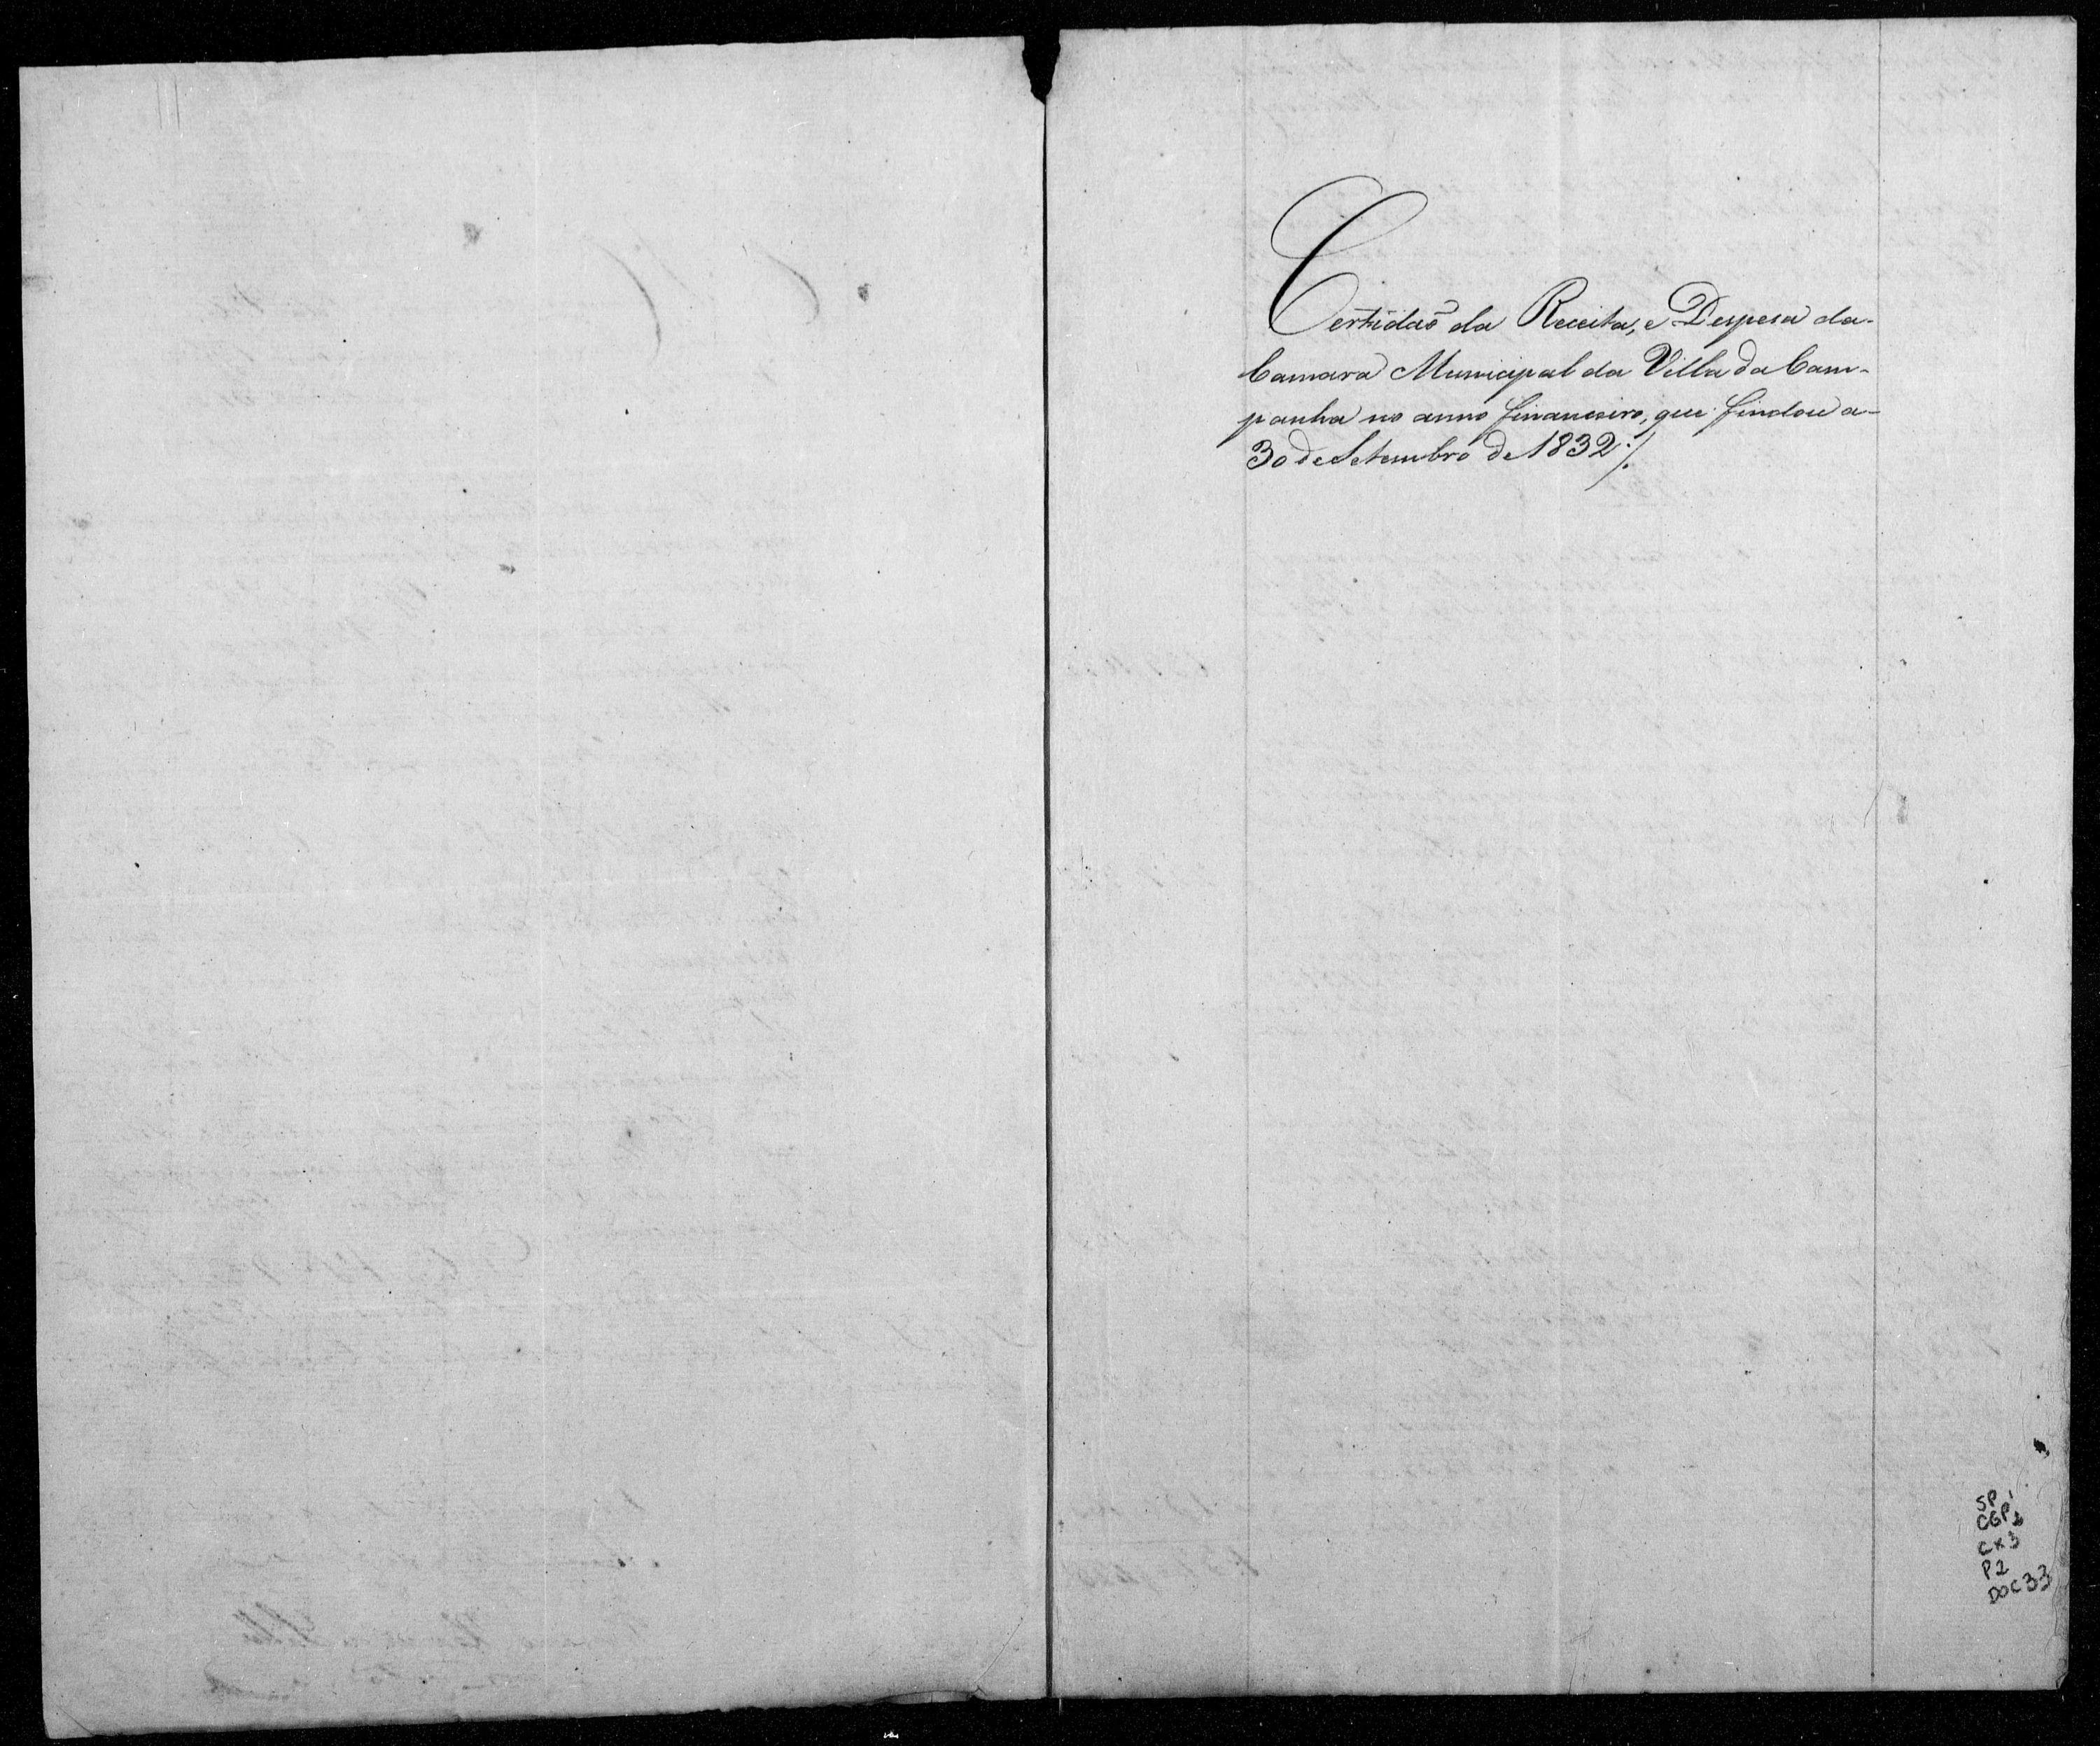 Certidaõ da Receita, e Despesa da-
Camara Municipal da Villa da Cam-
panha no anno financeiro, que findou a-
30 de Setembro de 1832 ·/.
SP
CGP1
CX3
P2
DOC33